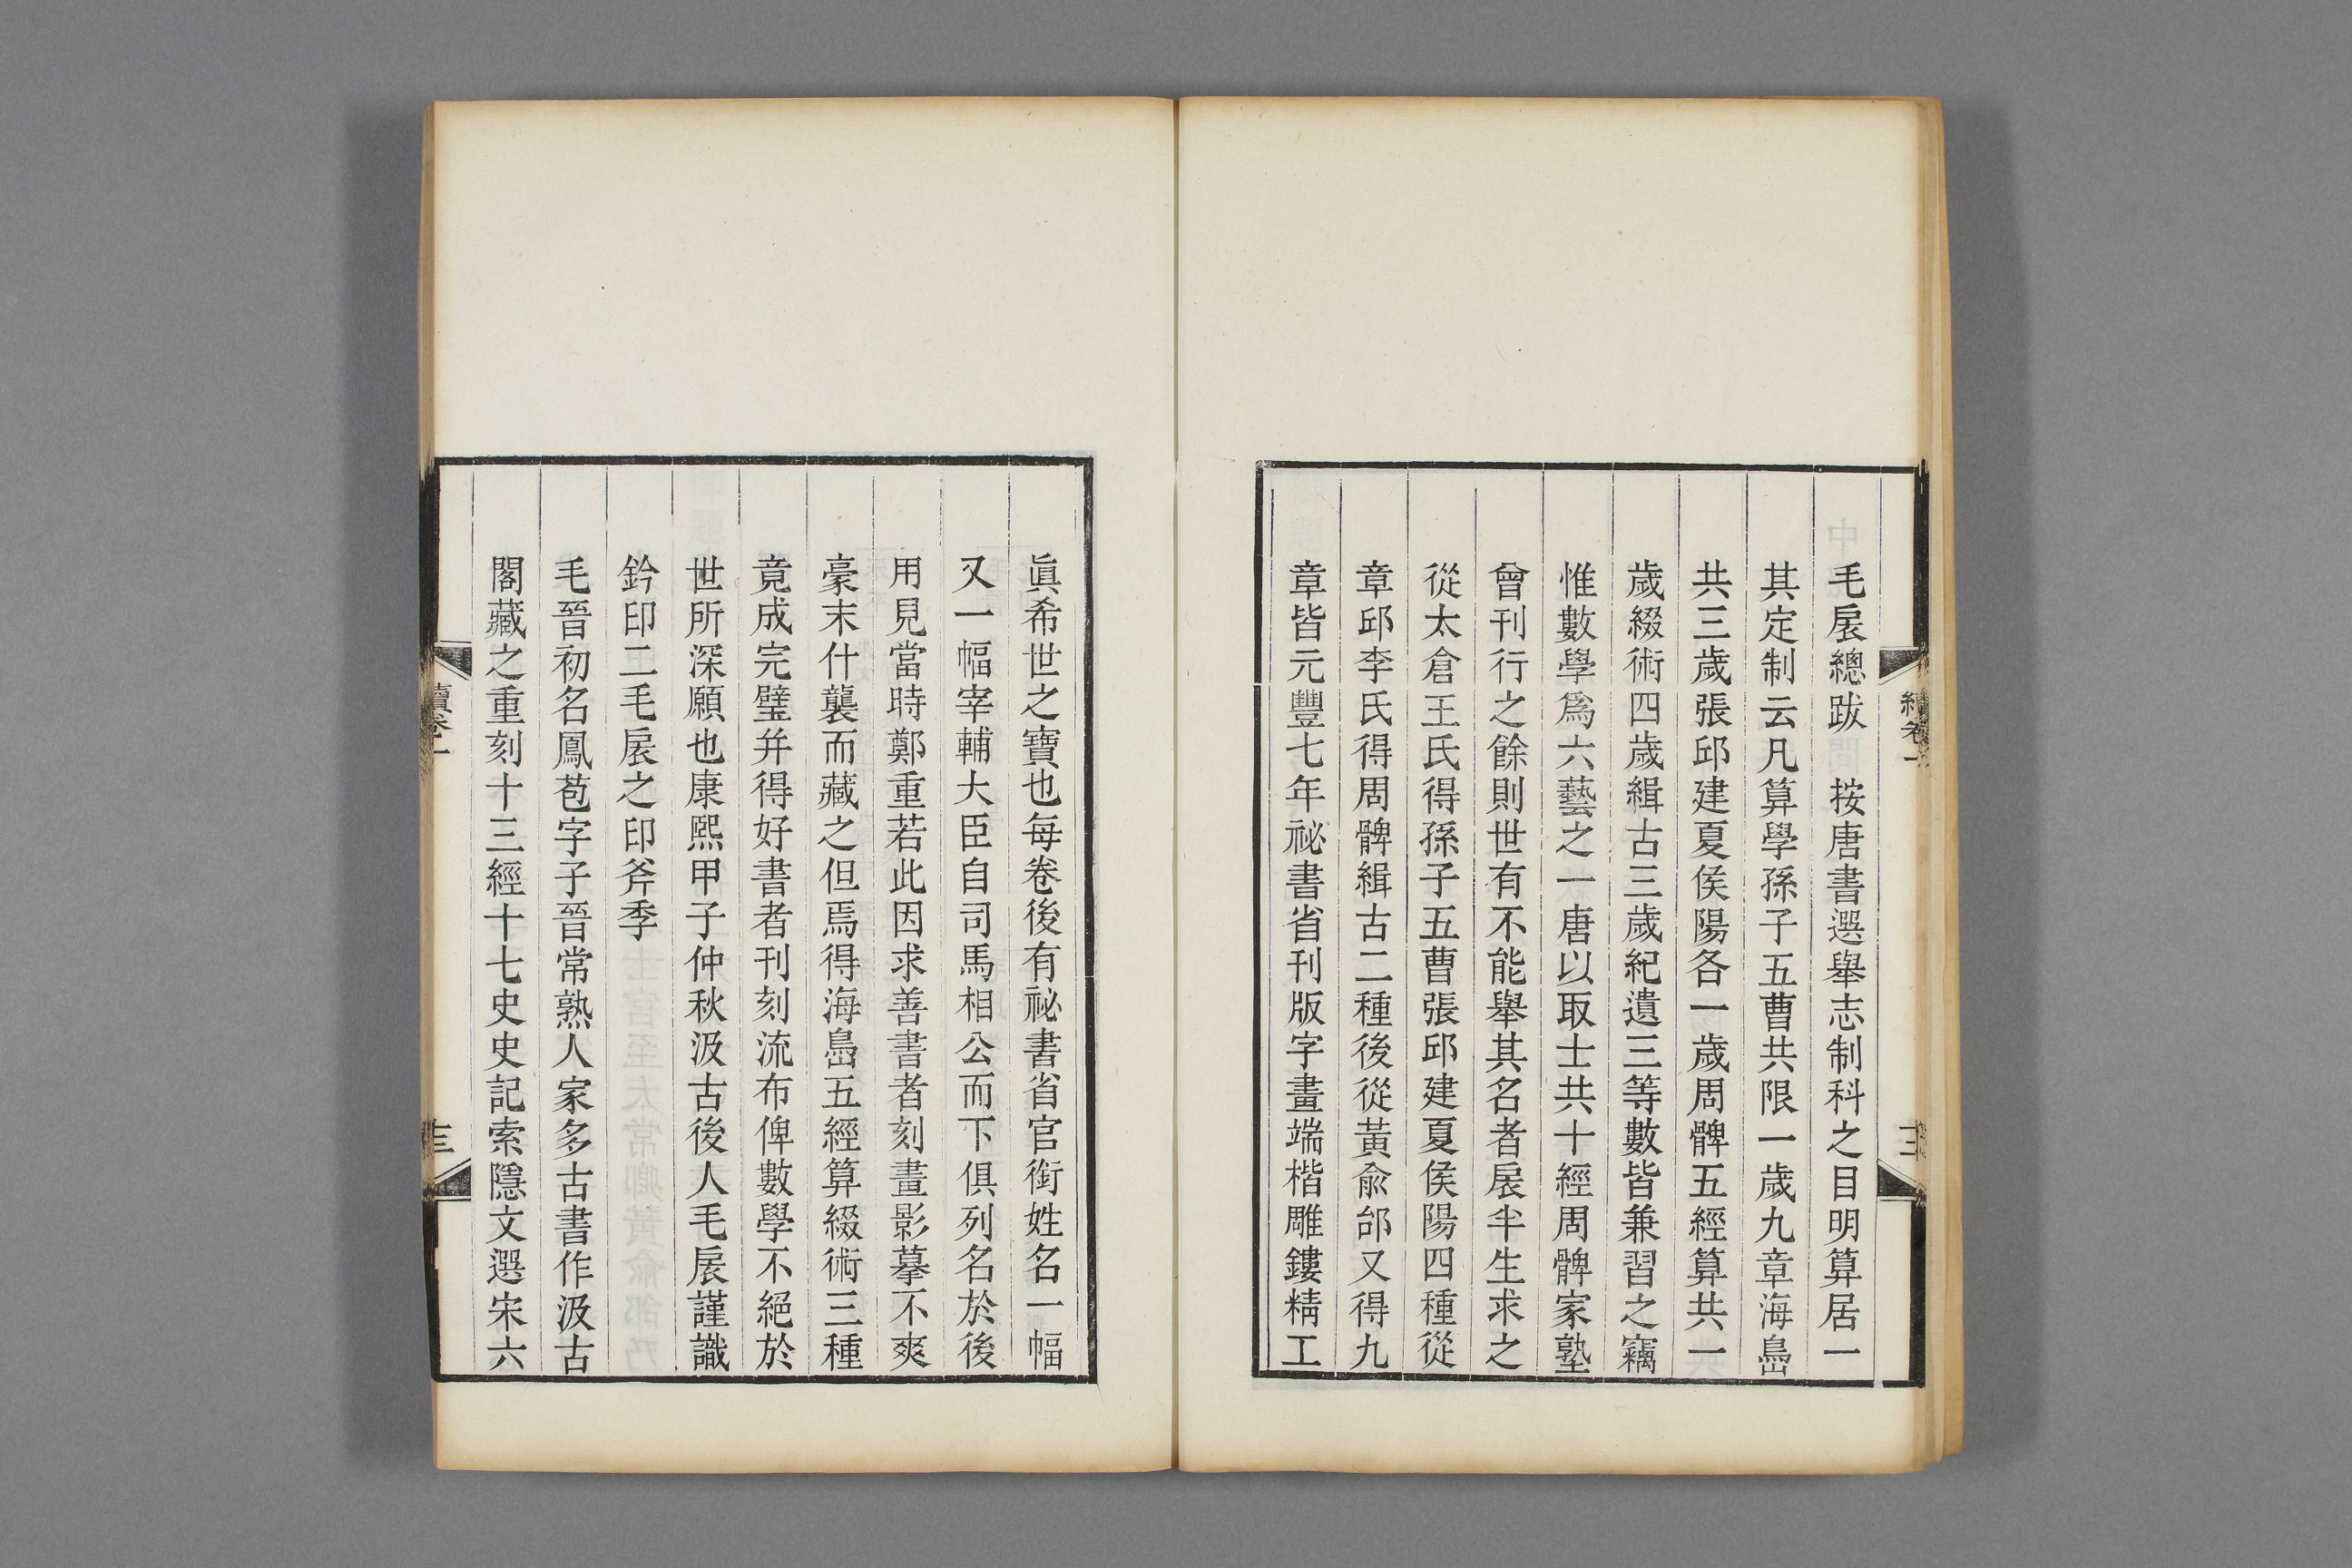 毛扆總跋　按唐書選舉志制科之目明算居一
其定制云凡算學孫子五曹共限一歲九章海島
共三歲張邱建夏侯陽各一歲周髀五經算共一
歲綴術四歲緝古三歲紀遺三等數皆兼習之竊
惟數學爲六藝之一唐以取士共十經周髀家塾
曾刊行之餘則世有不能舉其名者扆半生求之
從太倉王氏得孫子五曹張邱建夏侯陽四種從
章邱李氏得周髀緝古二種後從黃俞邰又得九
章皆元豐七年祕書省刊版字畫端楷雕鏤精工
眞希世之寶也每卷後有祕書省官銜姓名一幅
又一幅宰輔大臣自司馬相公而下俱列名於後
用見當時鄭重若此因求善書者刻畫影摹不爽
豪末什襲而藏之但焉得海島五經算綴術三種
竟成完璧并得好書者刊刻流布俾數學不絕於
世所深願也康熙甲子仲秋汲古後人毛扆謹識
鈐印二毛扆之印斧季
毛晉初名鳳苞字子晉常熟人家多古書作汲古
閣藏之重刻十三經十七史史記索隱文選宋六
續卷一
十三
續卷一
十三